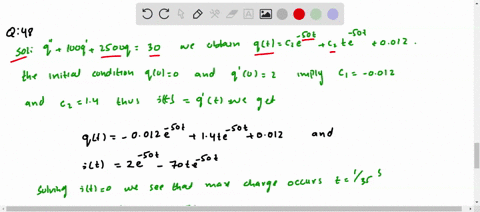 Q:48
Sol: q" + 100q' + 2500q = 30 we obtain q(t) = c₁e^-50t + c₂ t e^-50t + 0.012.
the initial condition q(0)=0 and q'(0)=2 imply c₁ = -0.012
and c₂ = 1.4 thus i(t) = q'(t) we get
q(t) = -0.012e^-50t + 1.4te^-50t + 0.012 and
i(t) = 2e^-50t - 70te^-50t
Solving i(t)=0 we see that max charge occurs t = 1/35 s